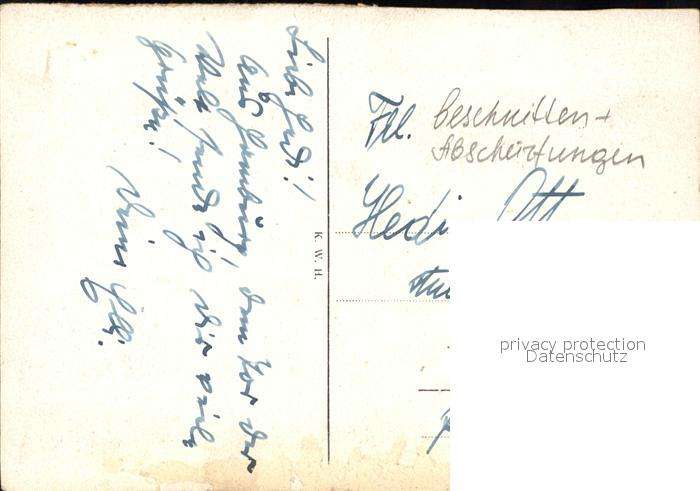 Liebe Hedi!
Aus Hamburg, dem Tor der
Welt sende ich dir viele
Grüße!
Deine Elli.
K. W. H.
Frl. beschnitten +
Abschürfungen
Hedi Ott
privacy protection
Datenschutz